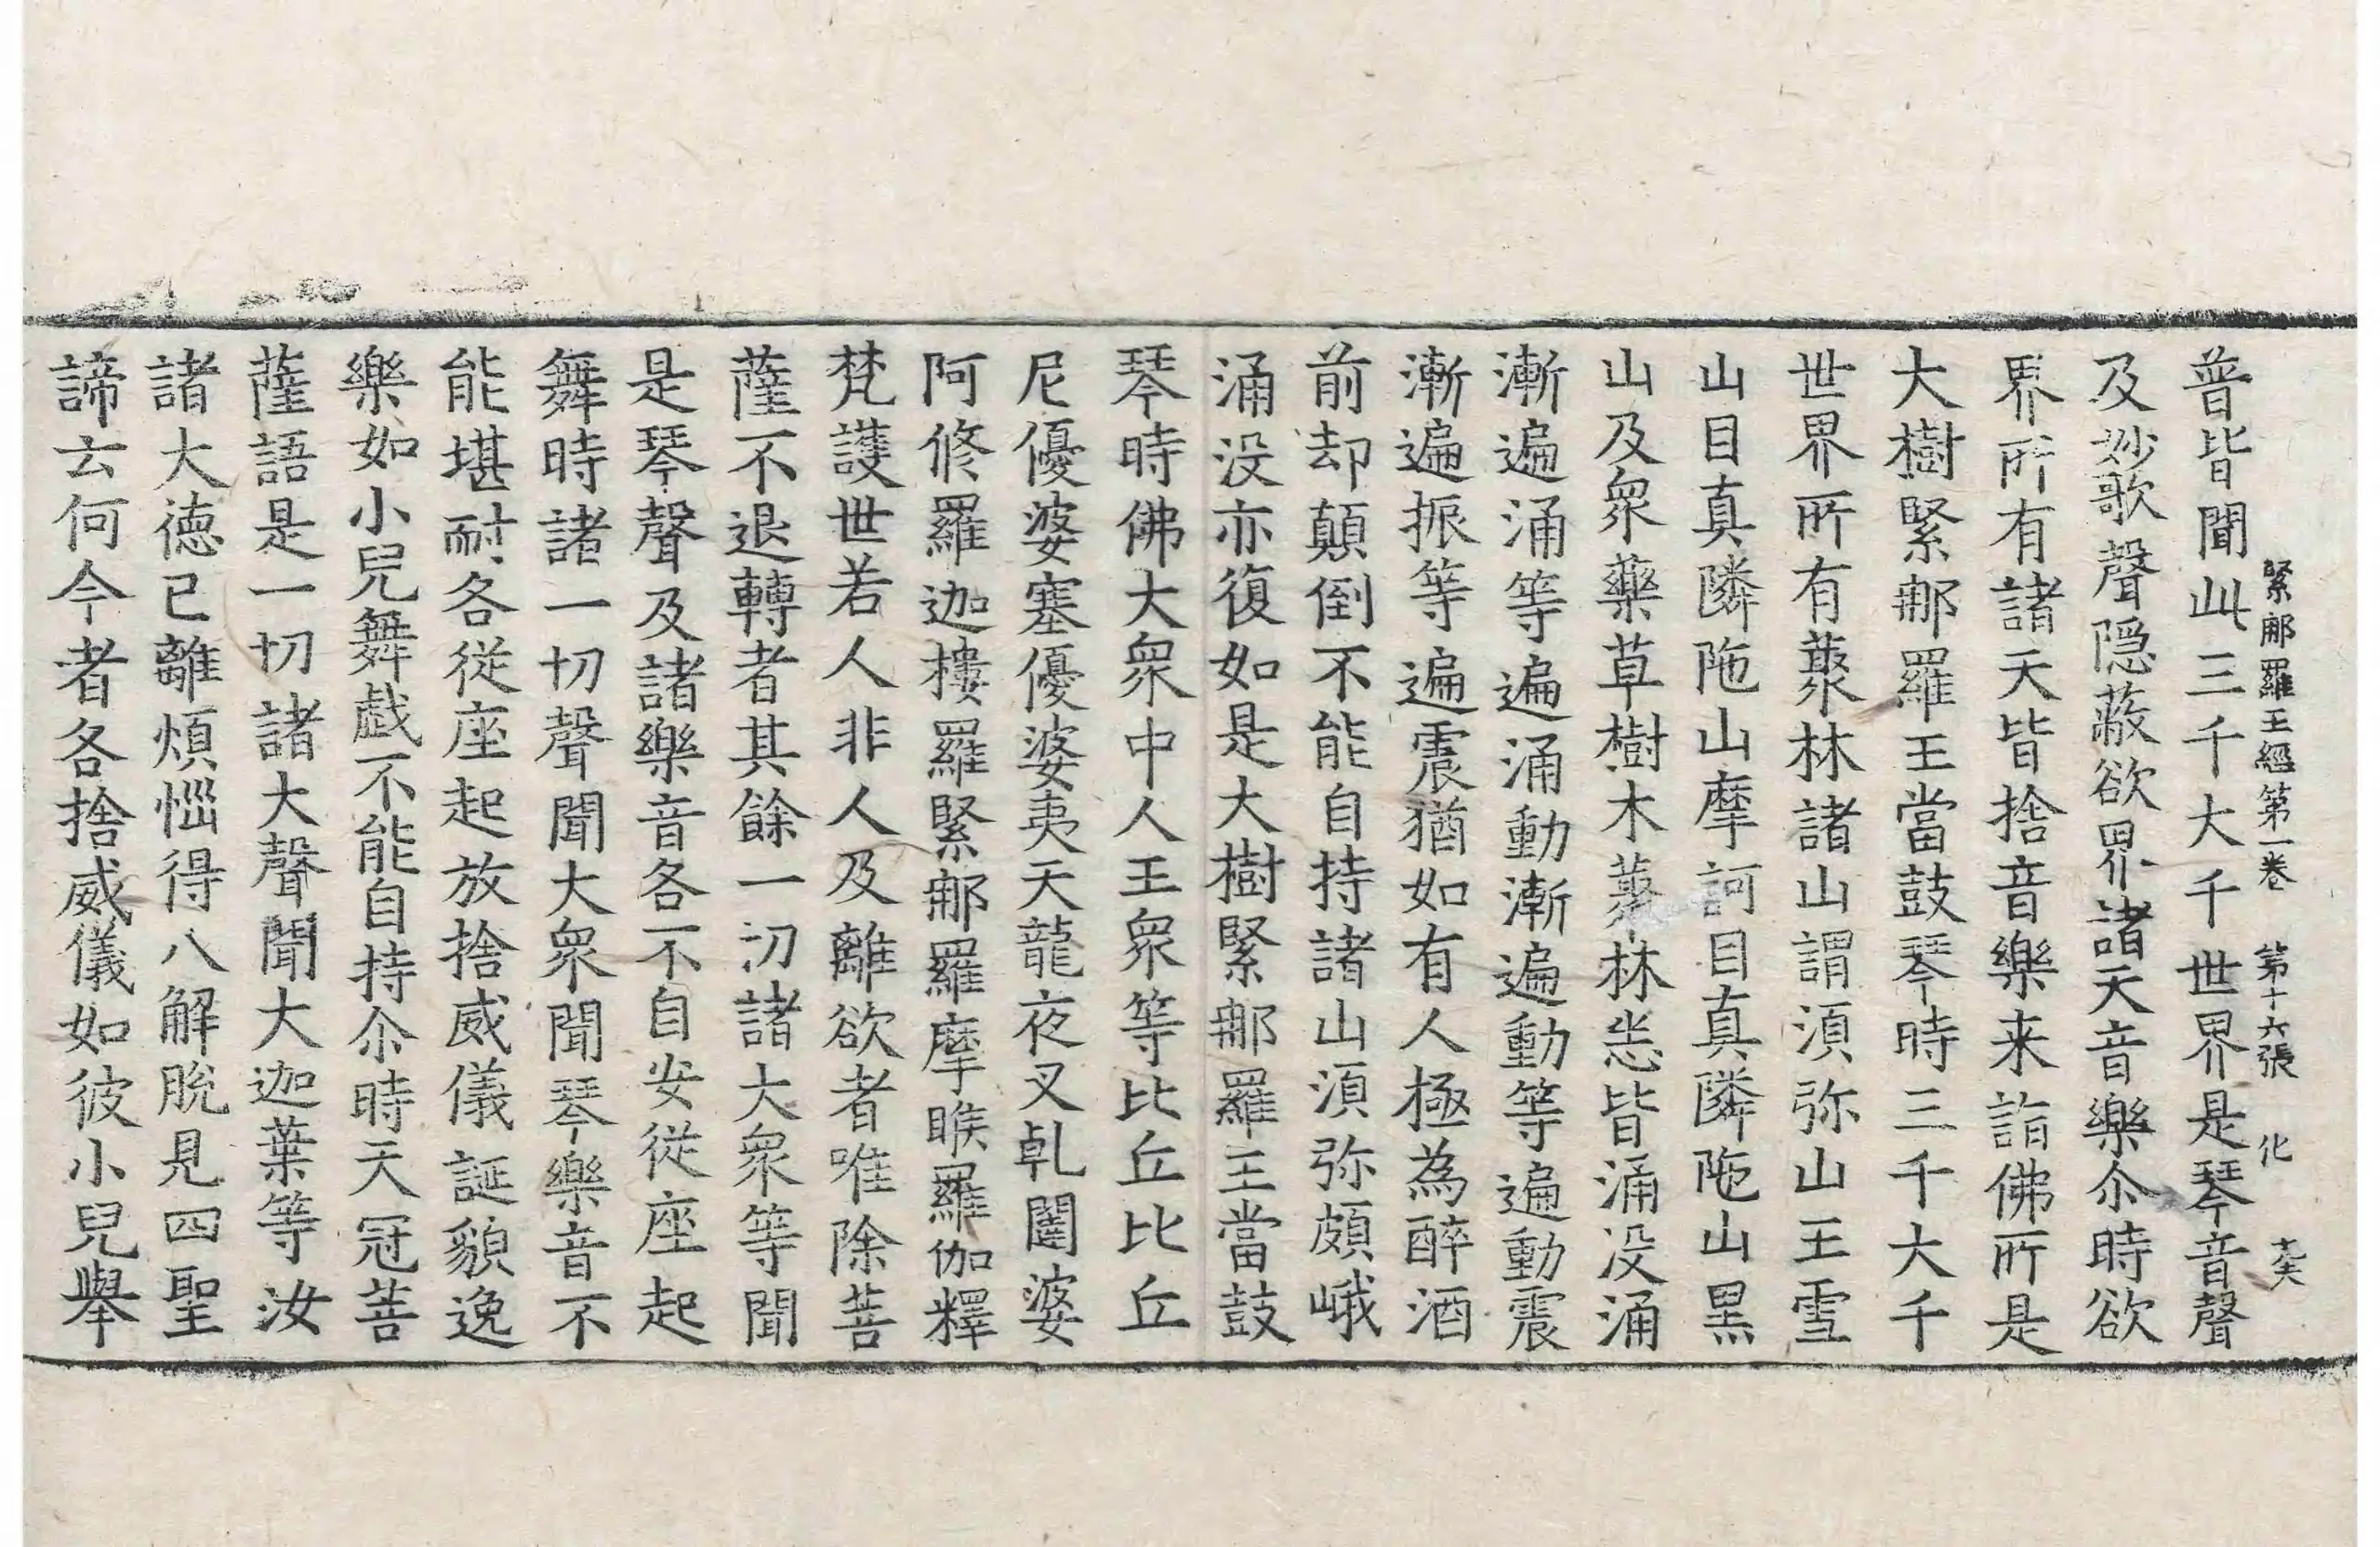 緊那羅王經第一卷 第十六張 化
普皆聞此三千大千世界是琴音聲
及妙歌聲隱蔽欲界諸天音樂尒時欲
界所有諸天皆捨音樂来詣佛所是
大樹緊那羅王當鼓琴時三千大千
世界所有藂林諸山謂湏弥山王雪
山目真隣陁山摩訶目真隣陁山黑
山及衆藥草樹木藂林悉皆涌没涌
漸遍涌等遍涌動漸遍動等遍動震
漸遍振等遍震猶如有人極為醉酒
前却顛倒不能自持諸山湏弥頗峨
涌没亦復如是大樹緊那羅王當鼓
琴時佛大衆中人王衆等比丘比丘
尼優婆塞優婆夷天龍夜叉乹闥婆
阿修羅迦樓羅緊那羅摩睺羅伽釋
梵護世若人非人及離欲者唯除菩
薩不退轉者其餘一切諸大衆等聞
是琴聲及諸樂音各不自安従座起
舞時諸一切聲聞大衆聞琴樂音不
能堪耐各従座起放捨威儀誕貌逸
樂如小兒舞戯不能自持尒時天冠菩
薩語是一切諸大聲聞大迦葉等汝
諸大德已離煩惱得八解脫見四聖
諦云何今者各捨威儀如彼小兒舉